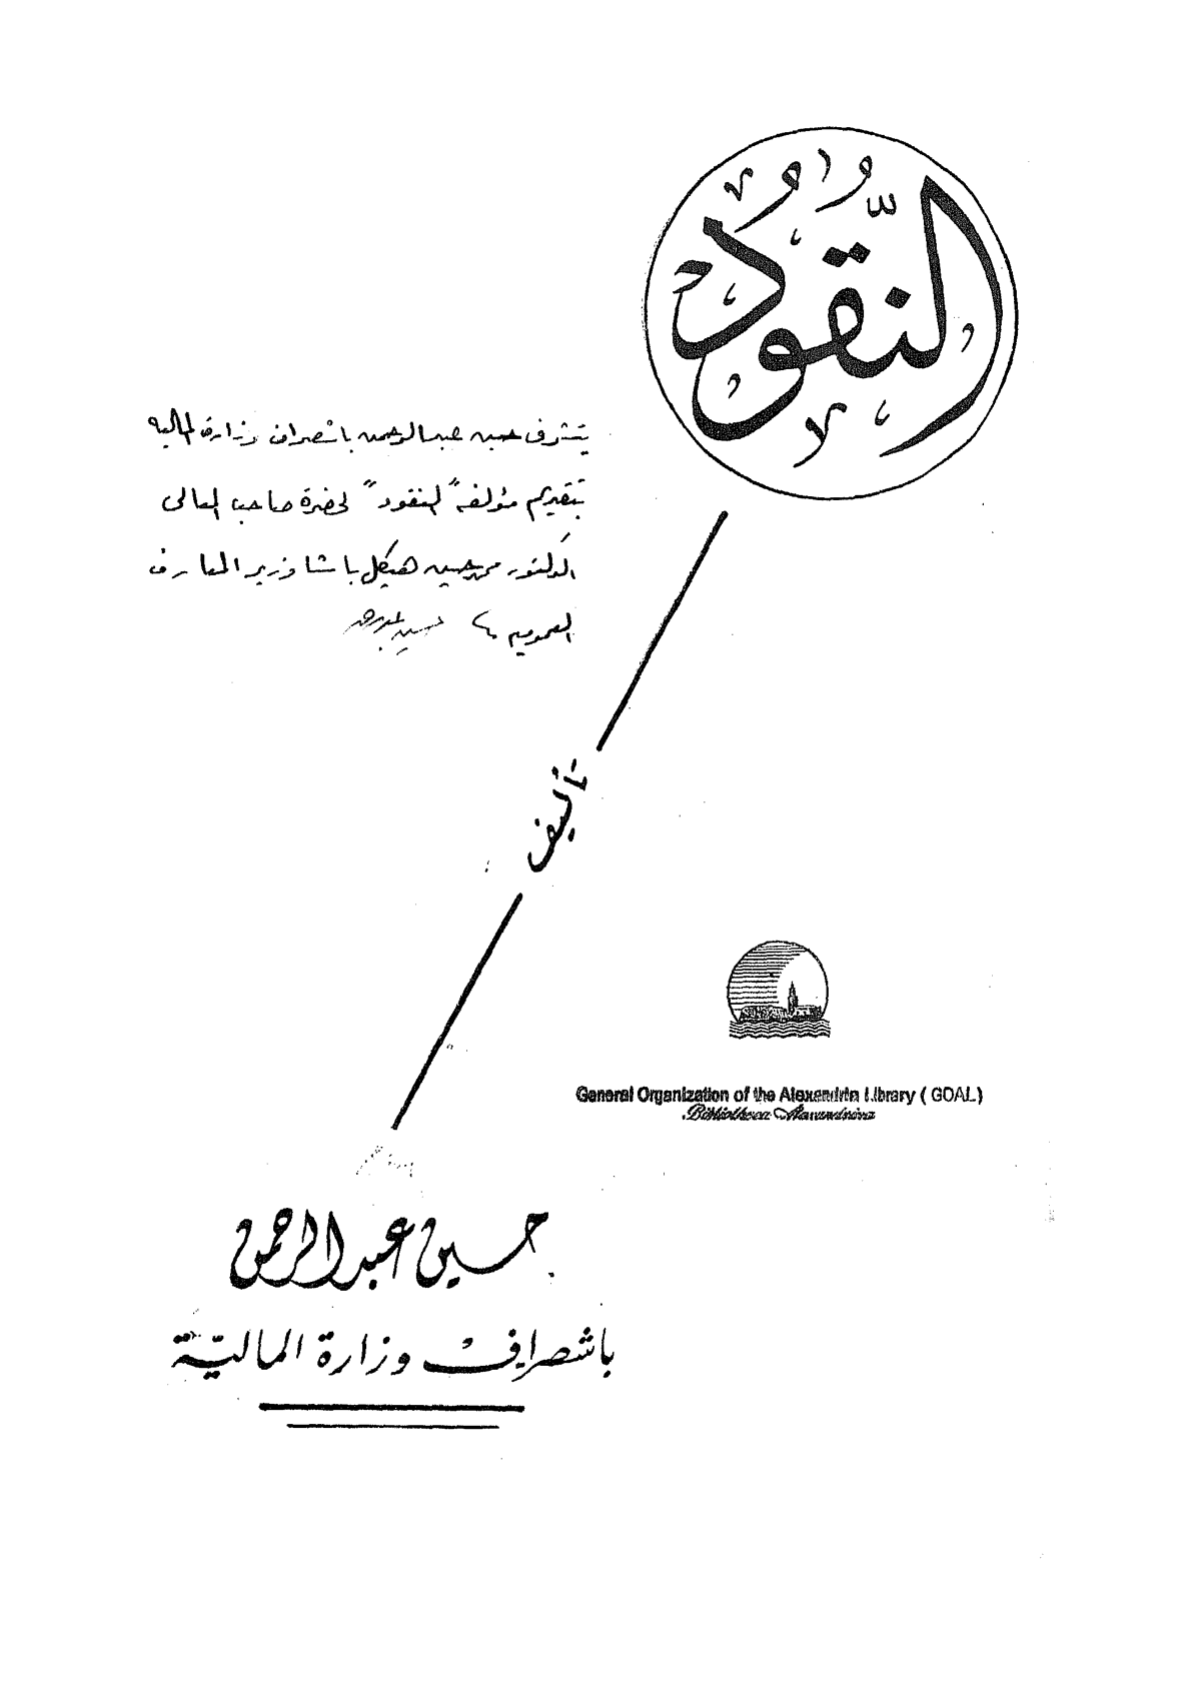 النَّقُود
يتشرف حسين عبد الرحمن باشصراف وزارة المالية
بتقديم مؤلفه "النقود" لحضرة صاحب المعالى
الدكتور محمد حسين هيكل باشا وزير المعارف
العمومية حسين عبد الرحمن
تأليف
General Organization of the Alexandria Library ( GOAL )
Bibliotheca Alexandrina
حسين عبد الرحمن
باشصراف وزارة الماليّة